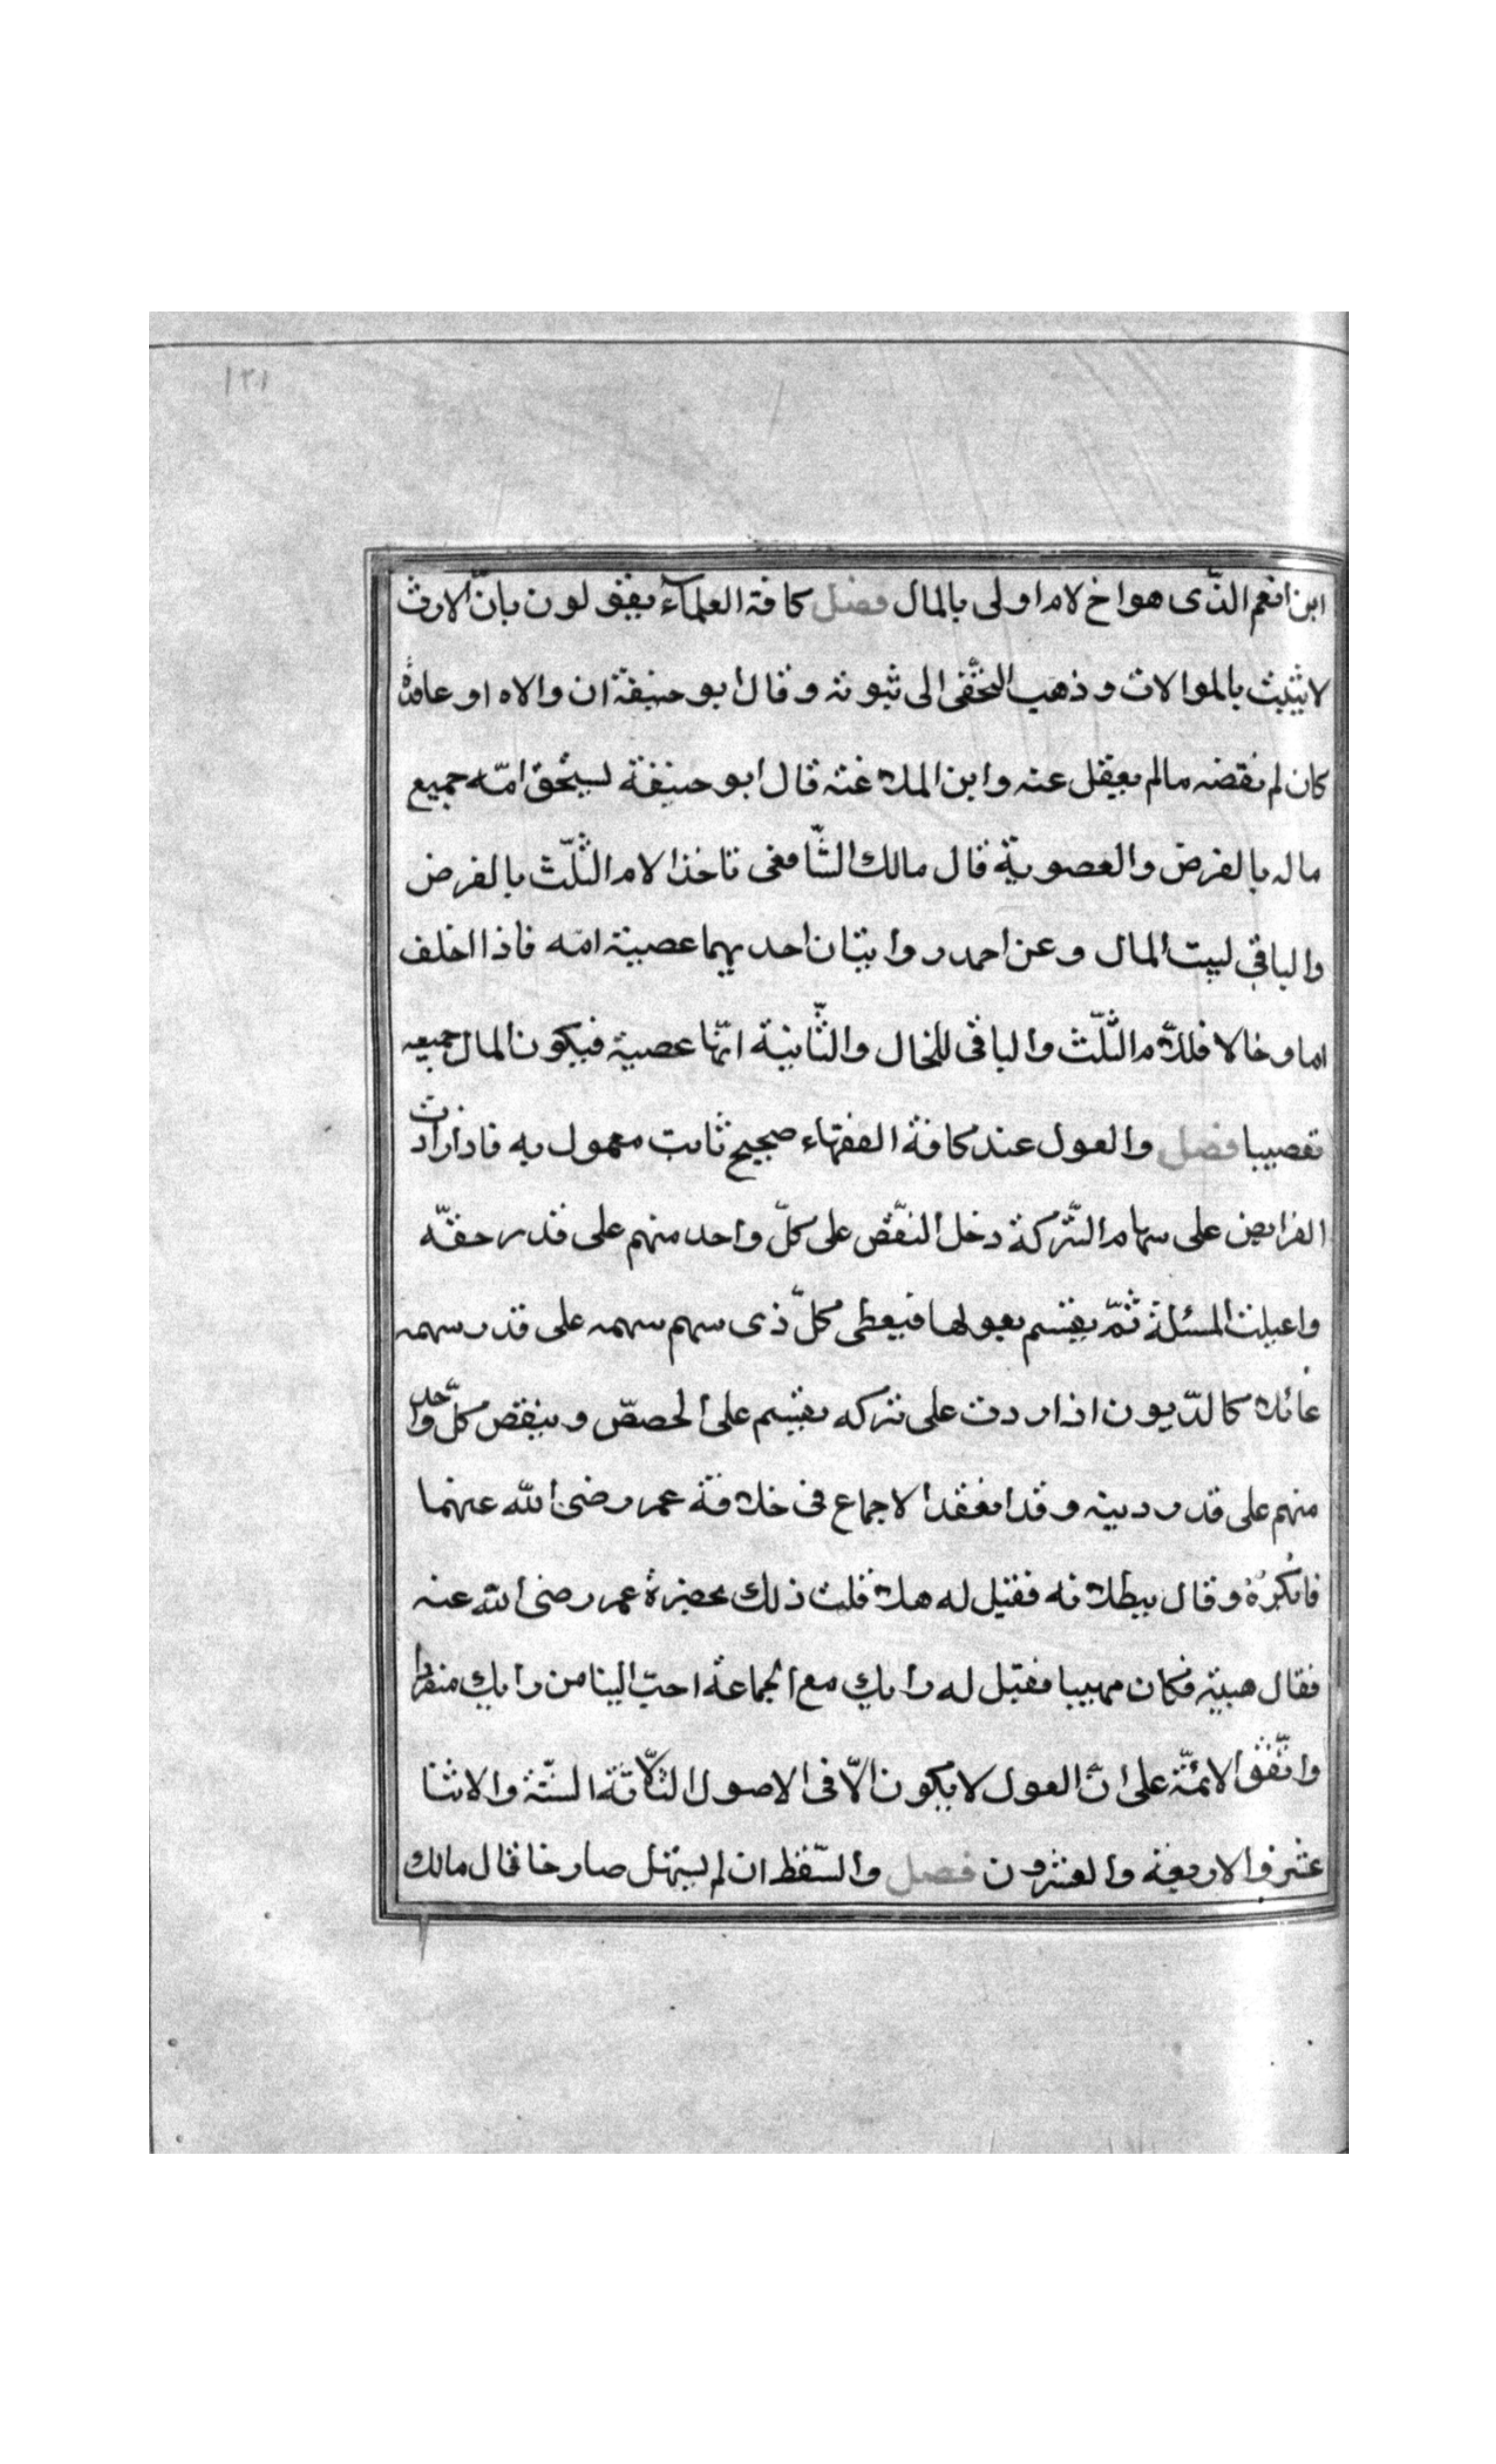 ١٢١
ابن العم الذّى هو اخ لام اولى بالمال فصل كافة العلمآء يقولون بانّ الارث
لا يثبت بالموالات وذهب النخّعى الى ثبوته وقال ابو حنيفة ان والاه او عاقده
كان لم نقضه مالم يعقل عنه وابن الملاعنه قال ابو حنيفة يستحق امّه جميع
ماله بالفرض والعصوبة قال مالك الشّافعى تاخذ الام الثّلث بالفرض
والباقى لبيت المال وعن احمد روايتان احديهما عصبية امّه فاذا اخلف
اما وخالا فللام الثّلث والباقى للخال والثّانية انّها عصبة فيكون المال جميعه
تعصيبا فصل والعول عند كافة الفقهاء صحيح ثابت معمول به فاذا زادت
الفرايض على سهام التّركة دخل النقّص على كلّ واحد منهم على قدر حقّه
واعيلت المسئلة ثمّ يقسم بعولها فيعطى كلّ ذى سهم سهمه على قدر سهمه
عائلا كالدّيون اذا ردت على تركه يقسم على الحصصّ وينقص كلّ واحد
منهم على قدر دينه وقد انعقد الاجماع فى خلافة عمر رضى الله عنهما
فانكرهُ وقال ببطلانه فقيل له هلا قلت ذلك بحضرة عمر رضى الله عنه
فقال هبيته فكان مهيبا فقيل له رايك مع الجماعة احبّ الينا من رايك منفردا
واتّفق الائمّة على انّ العول لا يكون الّا فى الاصول الثّلاثة السّتة والاثنا
عشر والاربعة والعشرون فصل والسّقط ان لم يستهل صارخا قال مالك